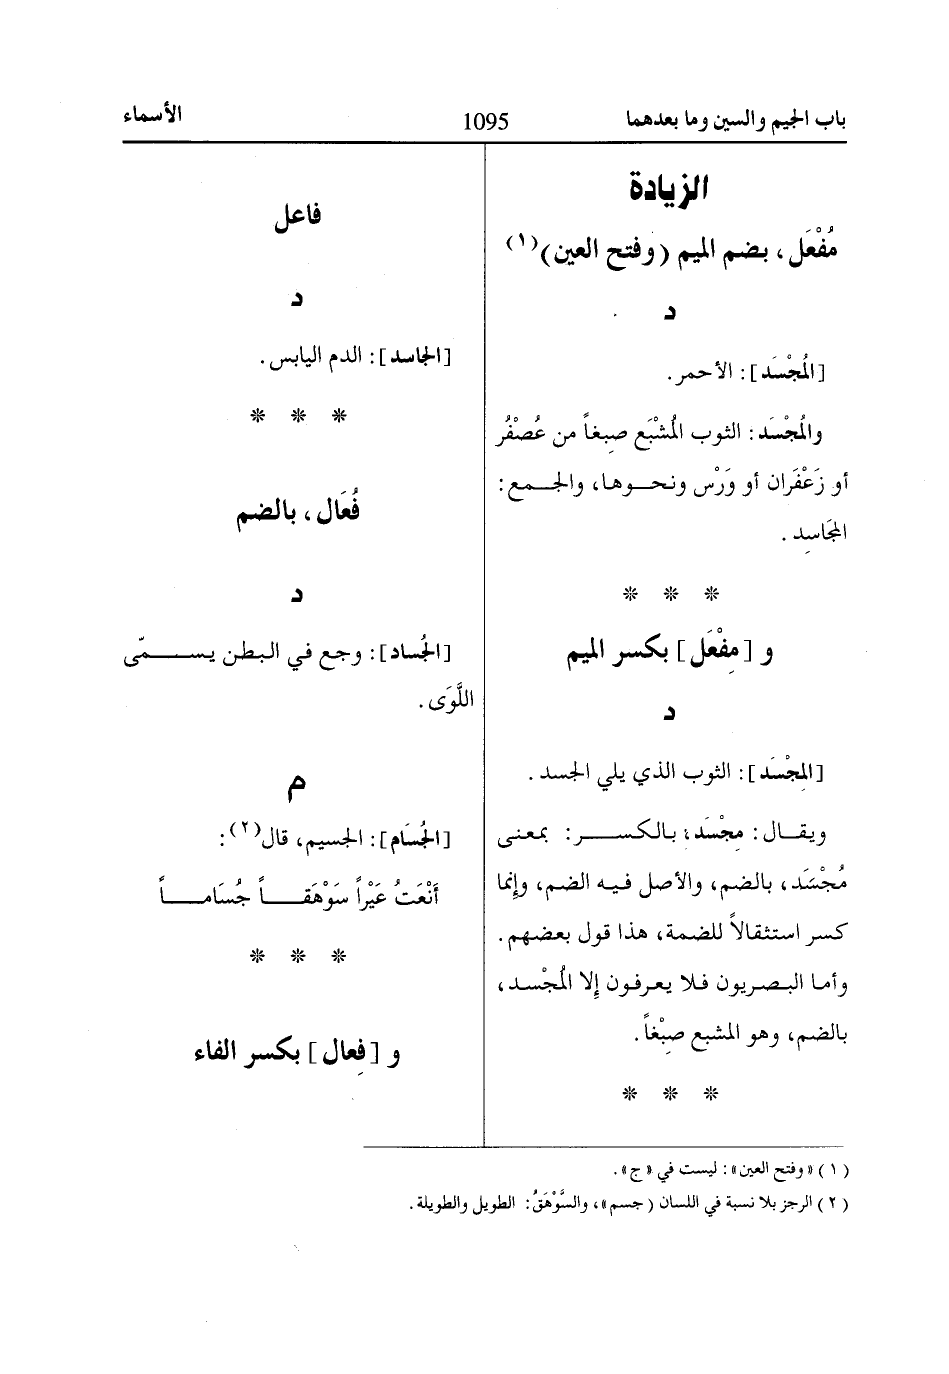 باب الجيم والسين وما بعدهما
1095
الأسماء
الزيادة
مُفْعَل، بضم الميم (وفتح العين)(١)
د
[المُجْسَد]: الأحمر.
والمُجْسَد: الثوب المُشْبَع صِبغاً من عُصْفُر
أو زَعْفَران أو وَرْس ونحوها، والجمع:
المجَاسِد.
* * *
و [مِفْعَل] بكسر الميم
د
[المِجْسَد]: الثوب الذي يلي الجسد.
ويقال: مِجْسَد، بالكسر: بمعنى
مُجْسَد، بالضم، والأصل فيه الضم، وإنما
كسر استثقالاً للضمة، هذا قول بعضهم.
وأما البصريون فلا يعرفون إلا المُجْسد،
بالضم، وهو المشبع صِبْغاً.
* * *
فاعل
د
[الجاسد]: الدم اليابس.
* * *
فُعَال، بالضم
د
[الجُساد]: وجع في البطن يسمّى
اللَّوَى.
م
[الجُسَام]: الجسيم، قال(٢):
أَنْعَتُ عَيْراً سَوْهَقاً جُسَاماً
* * *
و [فِعال] بكسر الفاء
(١) «وفتح العين»: ليست في «ج».
(٢) الرجز بلا نسبة في اللسان (جسم»، والسَّوْهَقُ: الطويل والطويلة.